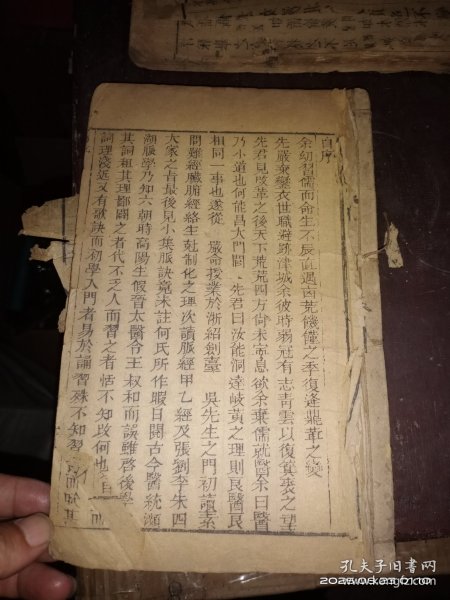 自序
余幼習儒而命生不辰直遇凶荒饑饉之季復逢鼎革之變
先嚴棄蠻衣世職避跡津城余彼時弱冠有志青雲以復箕裘之望
先君見改革之後天下荒荒四方尙未寧息欲余棄儒就醫余曰醫
乃小道也何能昌大門閭 先君曰汝能洞達岐黃之理則良醫良
相同一事也遂從 嚴命授業於浙紹創臺 吳先生之門初讀素
問難經臟腑經絡生尅制化之理次讀脈經甲乙經及張劉李朱四
大家之旨最後見小集脈訣毫未註何氏所作暇日閱古今醫統瀕
湖脈學乃知六朝時高陽生假晉太醫令王叔和而誤雖啓後學
其詞粗其理鄙闢之者代不乏人而習之者恬不知改何也
詞理淺近又有歌訣而初學入門者易於誦習殊不知習
孔夫子旧书网
www.kongfz.com